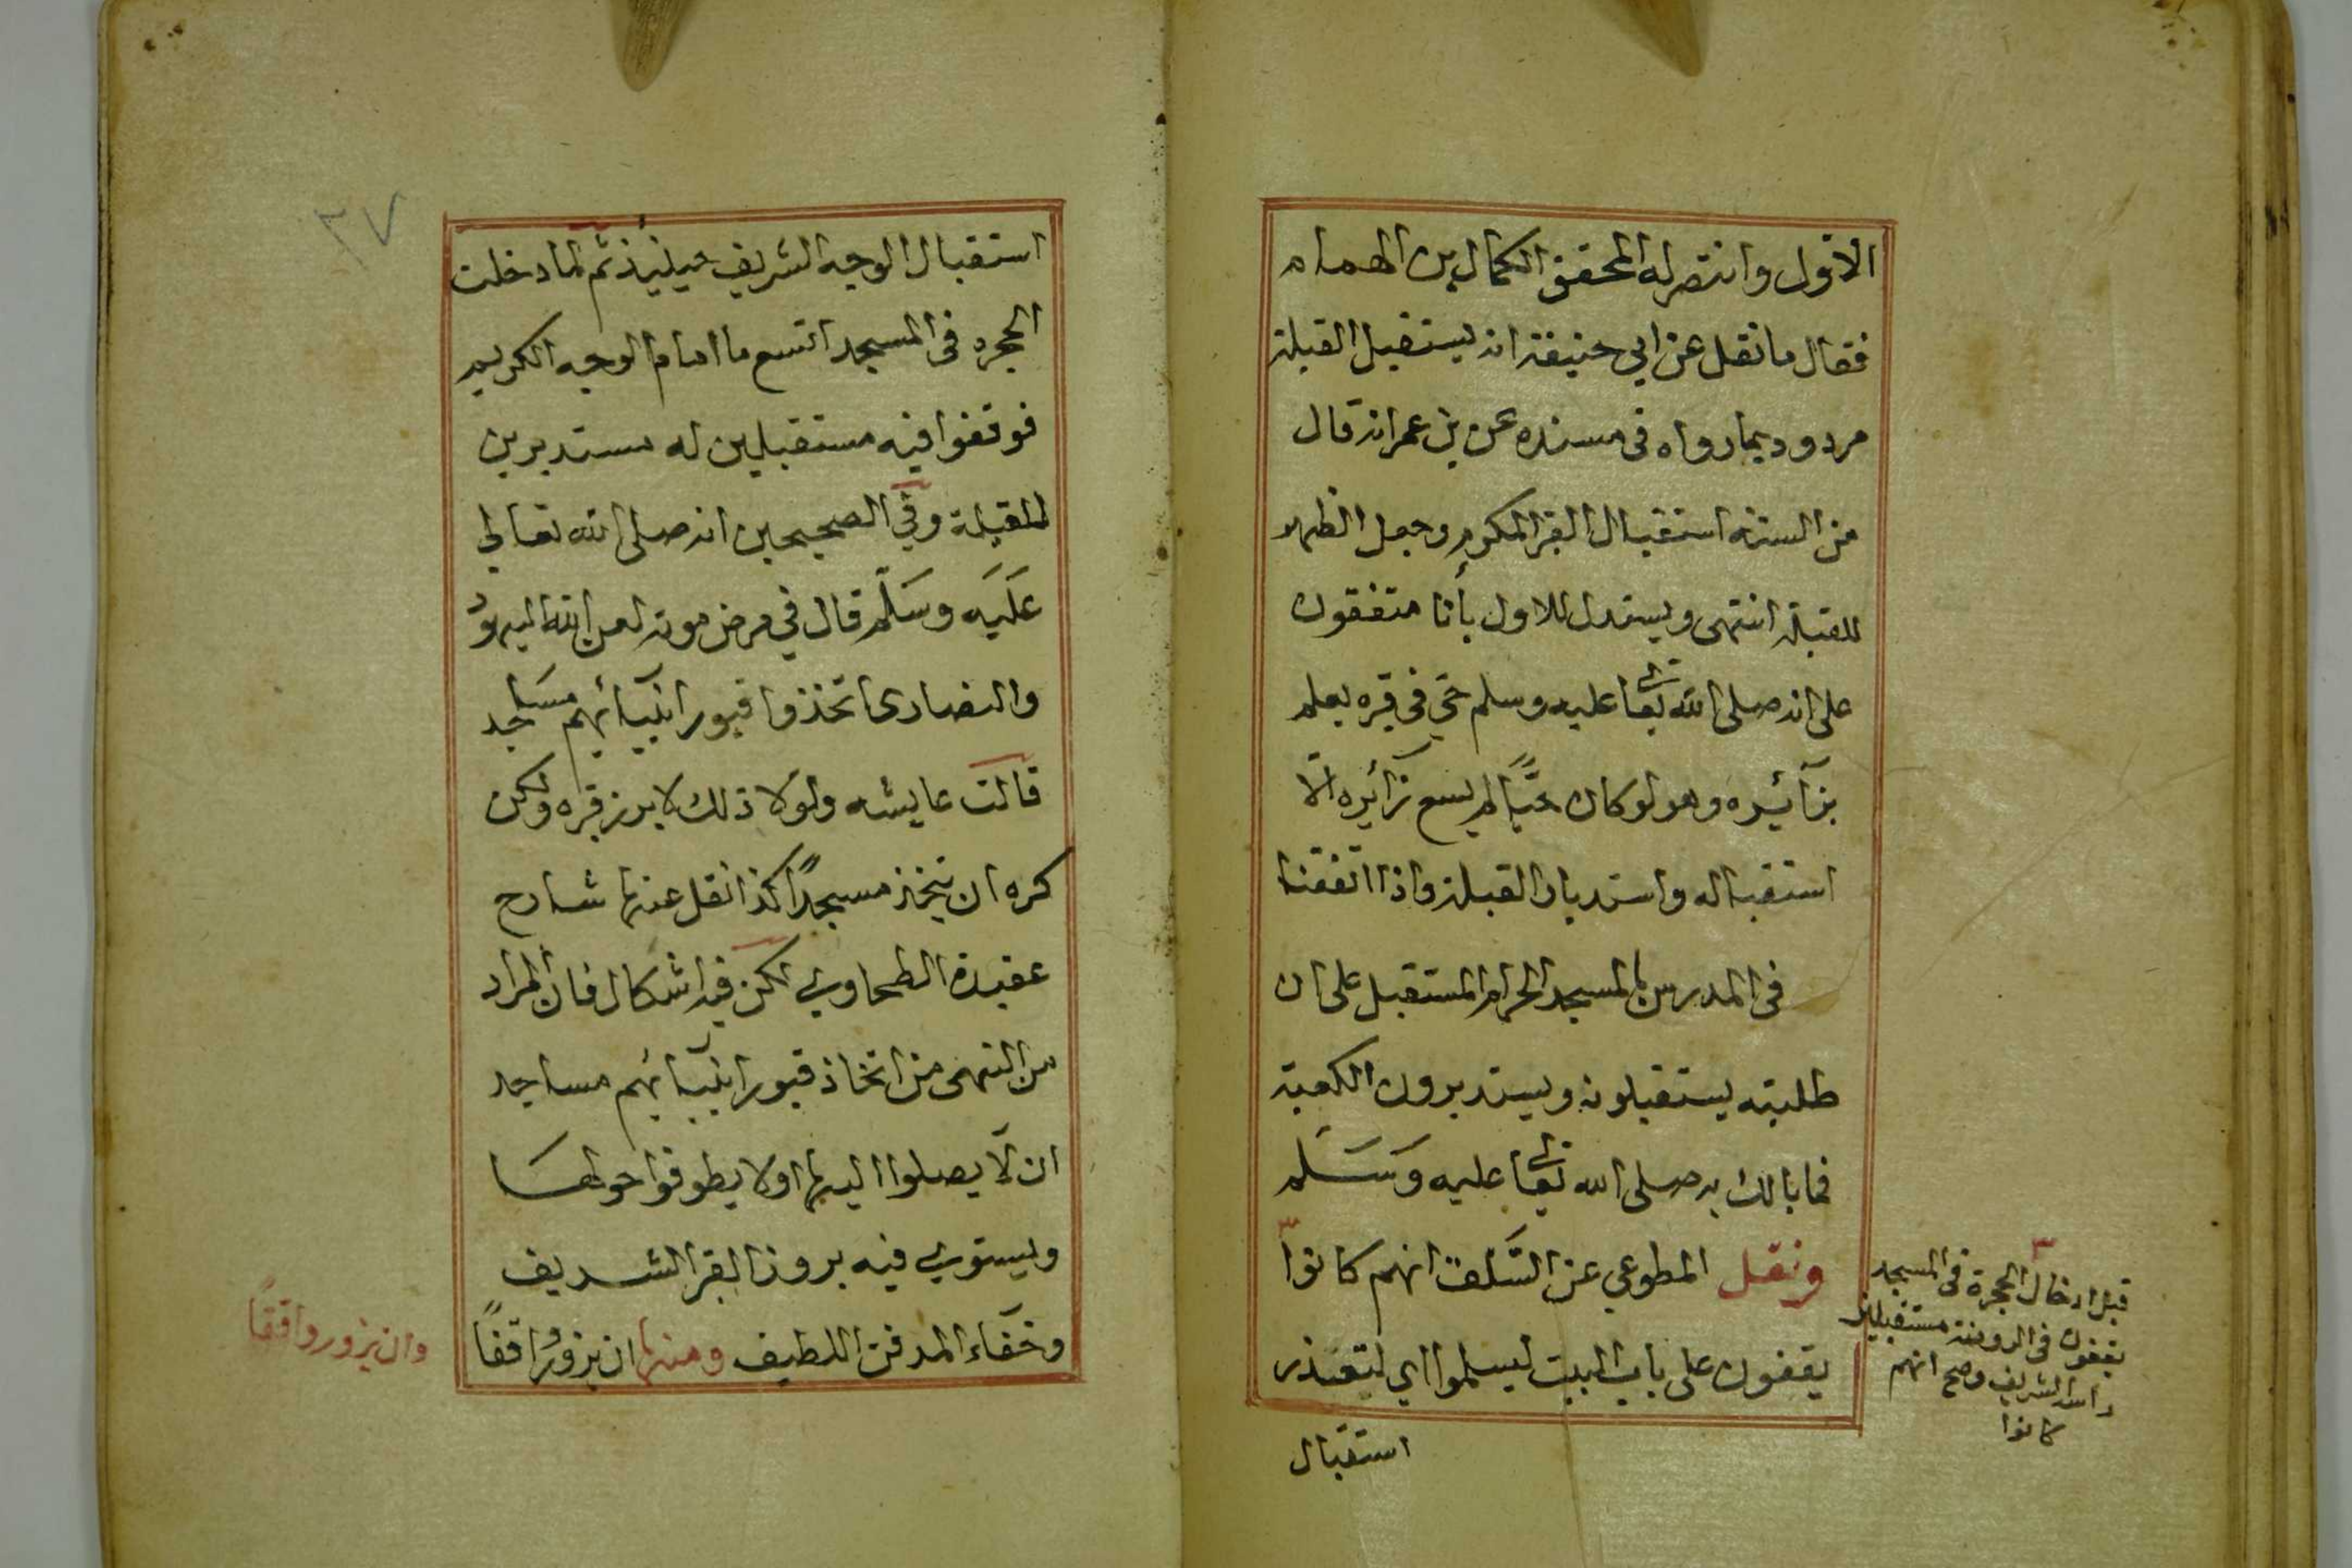 الاول وانتصر له المحقق الكمال بن الهمام
فقال ما نقل عن ابي حنيفة انه يستقبل القبلة
مردود بما رواه في مسنده عن بن عمر انه قال
من السنة استقبال القبر المكرم وجعل الظهر
للقبلة انتهى ويستدل للاول بأنا متفقون
على انه صلى الله تعالى عليه وسلم حي في قبره يعلم
بزآئيره وهو لو كان حيًّا لم يسع زآئيره الّا
استقباله واستدبار القبلة واذا اتفقنا
في المدرس بالمسجد الحرام المستقبل على ان
طلبته يستقبلونه ويستدبرون الكعبة
فما بالك به صلى الله تعالى عليه وَسَلم
ونقل المطوعي عن السَّلف انهم كانوا
يقفون على باب البيت ليسلموا اي لتعذر
استقبال
قبل ادخال الحجرة في المسجد
يقفون في الروضة مستقبلين
راسه الشريف وصح انهم
كانوا
٢٧
استقبال الوجه الشريف حينيئذ ثم لما دخلت
الحجره في المسجد اتسع ما امام الوجه الكريم
فوقفوا فيه مستقبلين له مستدبرين
للقبلة وفي الصحيحين انه صلى الله تعالى
عَلَيَه وسَلّم قال في مرض موته لعن الله اليهود
والنصارى اتخذوا قبور انبيآئهم مسَاجد
قالت عايشه ولولا ذلك لابرز قبره ولكن
كره ان يتخذ مسجدًا كذا نقل عنها شارح
عقيدة الطحاوي لكن فيه اشكال فان المراد
من النهى من اتخاذ قبور انبيآئهم مساجد
ان لّا يصلوا اليها اولا يطوفوا حولهَا
ويستوي فيه بروز القبر الشريف
وخفآء المدفن اللطيف ومنها ان يزورُ واقفًا
وان يزور واقفًا